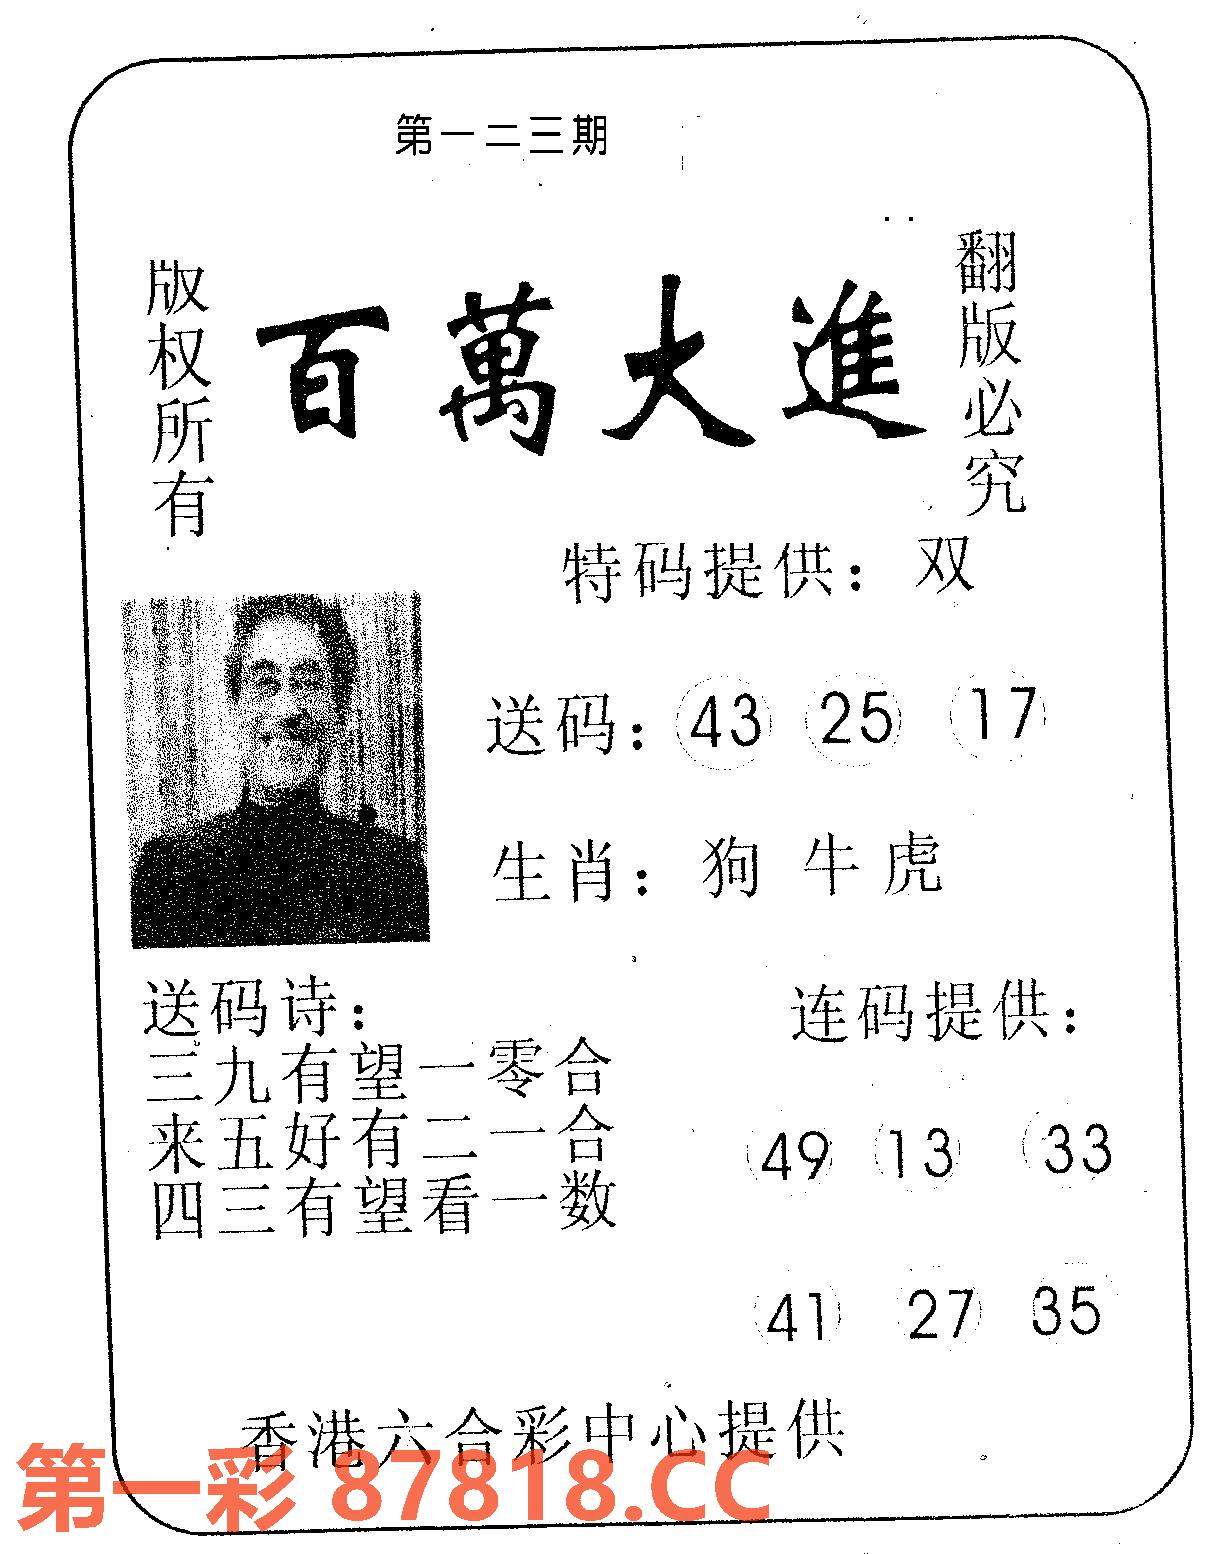 第一二三期
版权所有
百萬大進
翻版必究
特码提供：双
送码：43 25 17
生肖：狗 牛 虎
送码诗：
三九有望一零合
来五好有二一合
四三有望看一数
连码提供：
49 13 33
41 27 35
香港六合彩中心提供
第一彩 87818.CC